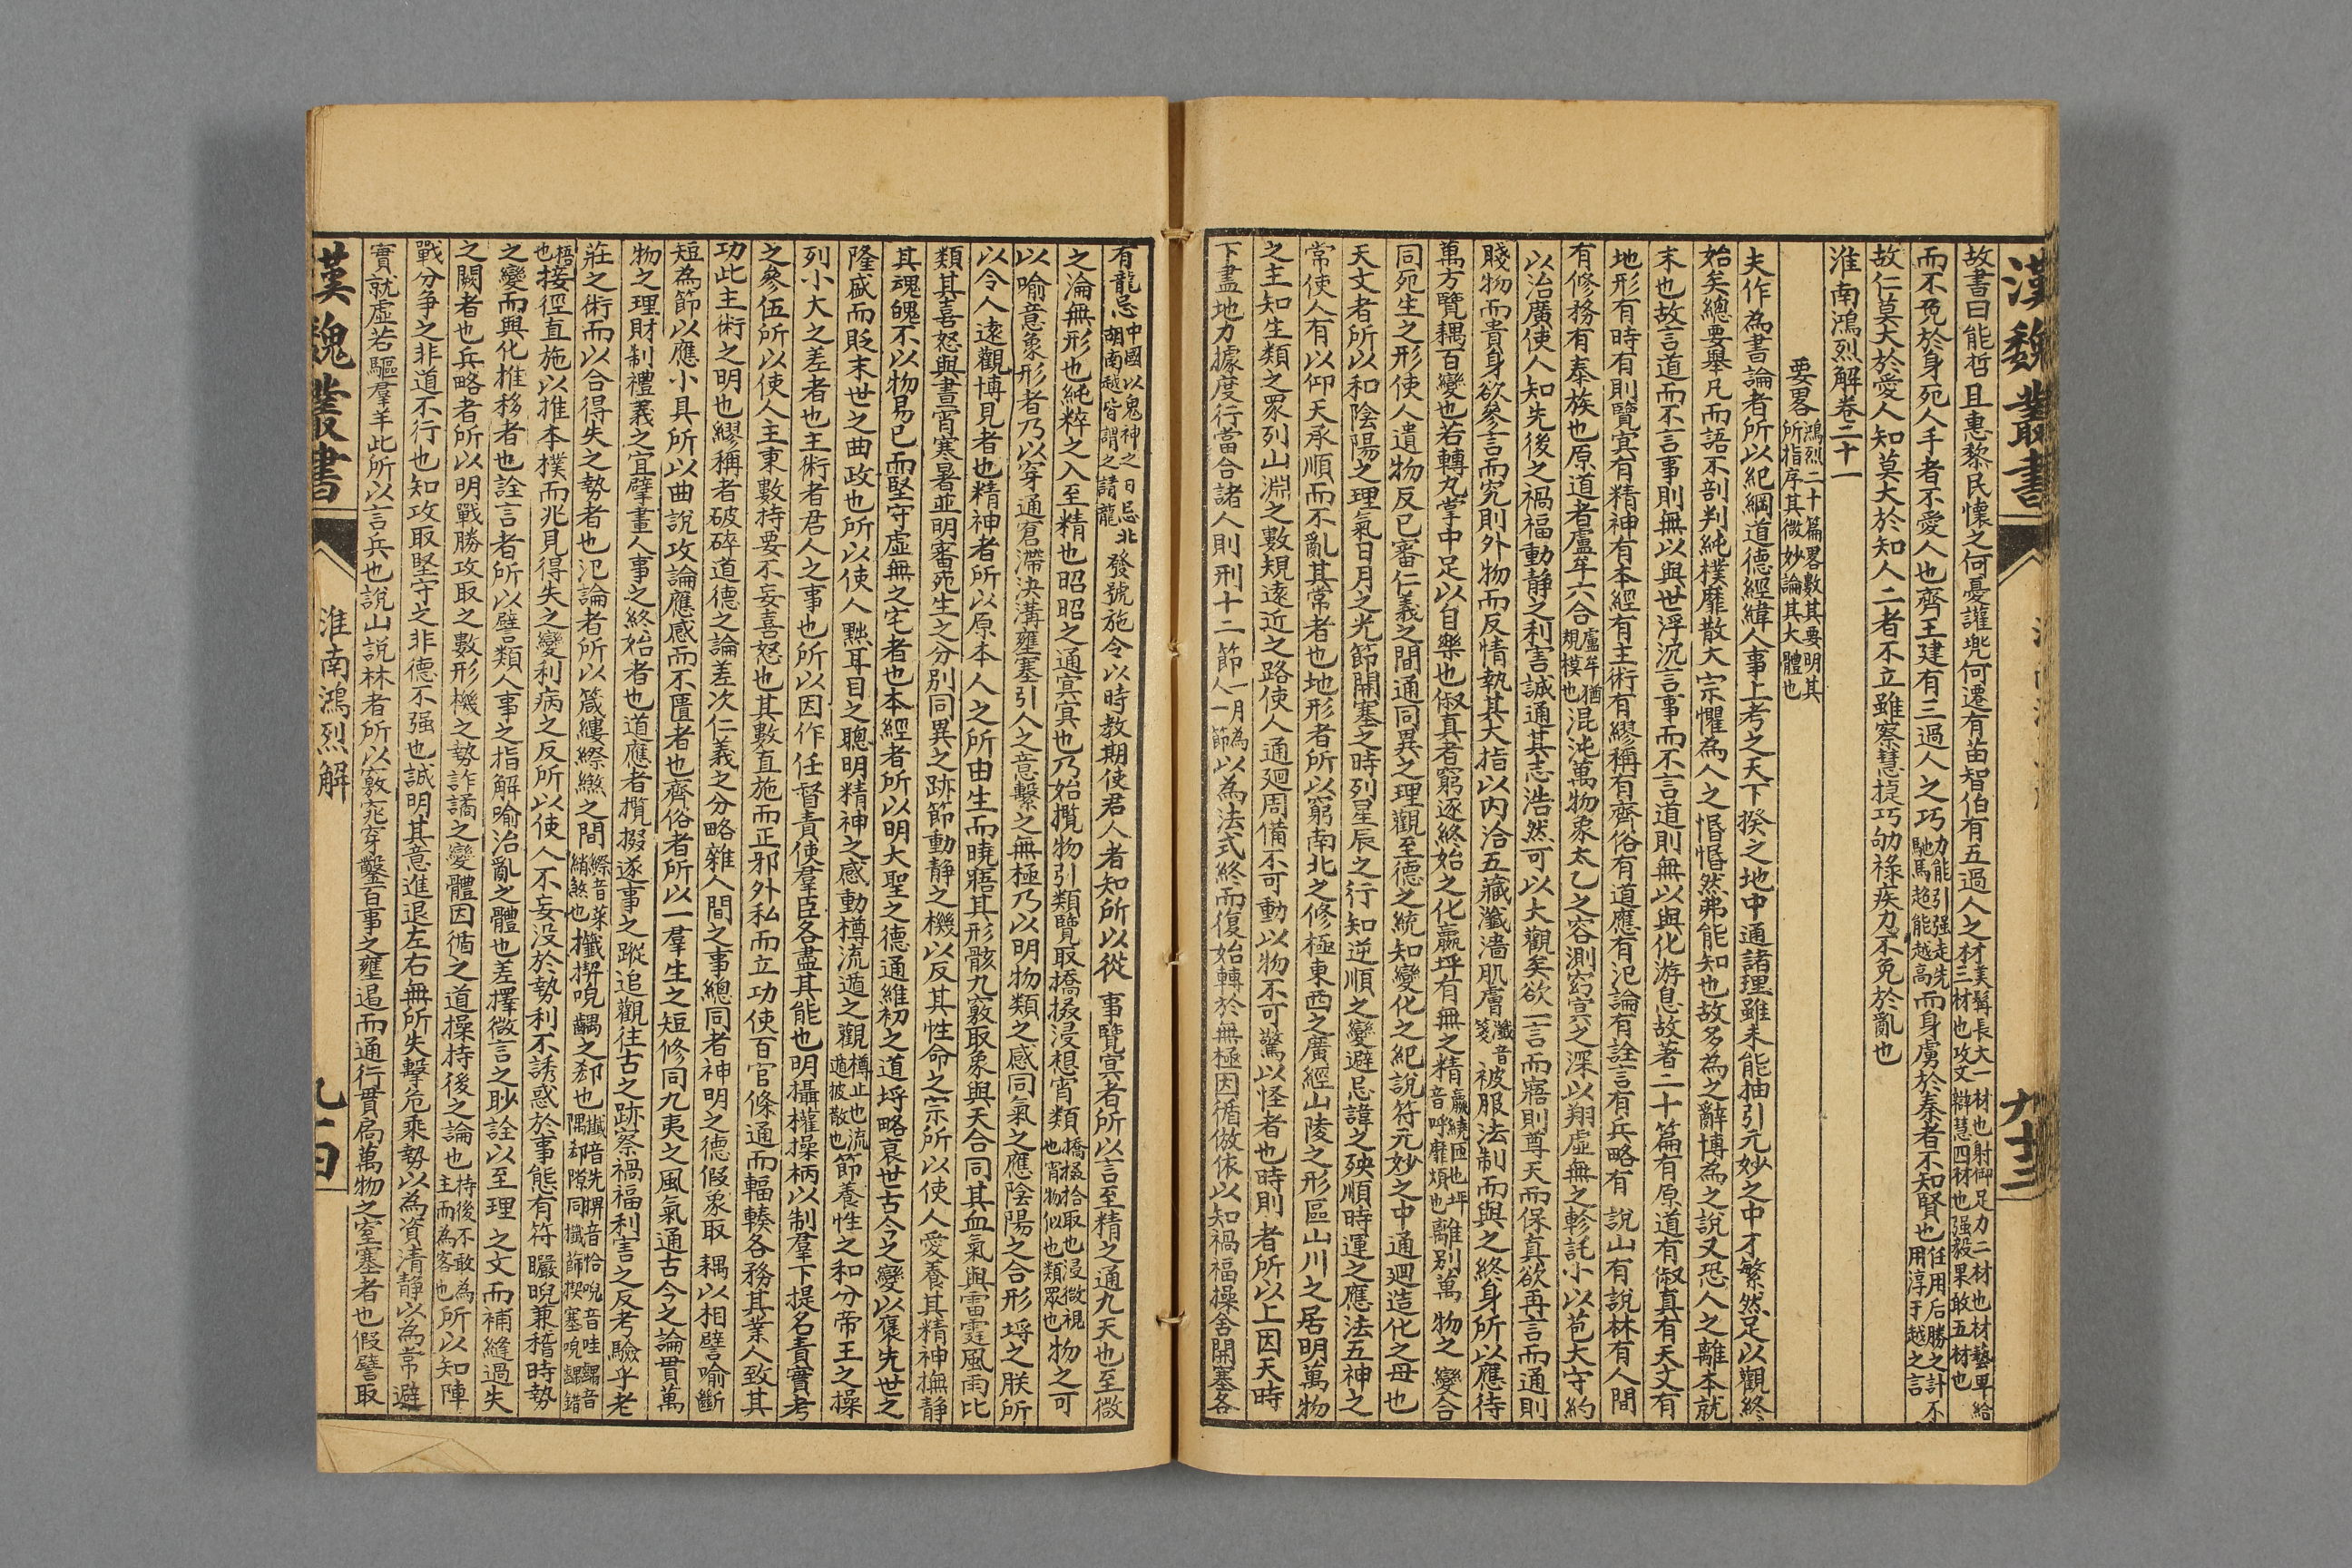 漢魏叢書
九十三
故書曰能哲且惠黎民懷之何憂讙兠何遷有苗智伯有五過人之材美髯長大一材也射御足力二材也材藝畢給三材也攻文辯慧四材也强毅果敢五材也
而不免於身死人手者不愛人也齊王建有三過人之巧力能引强走先馳馬超能越高而身虜於秦者不知賢也任用后勝之計不用淳于越之言
故仁莫大於愛人知莫大於知人二者不立雖察慧㨗巧劬祿疾力不免於亂也
淮南鴻烈解卷二十一
要畧鴻烈二十篇畧數其要明其所指序其微妙論其大體也
夫作為書論者所以紀綱道德經緯人事上考之天下揆之地中通諸理雖未能抽引元妙之中才繁然足以觀終
始矣總要舉凡而語不剖判純樸靡散大宗懼為人之惛惛然弗能知也故多為之辭博為之說又恐人之離本就
末也故言道而不言事則無以與世浮沉言事而不言道則無以與化游息故著二十篇有原道有俶真有天文有
地形有時有則覽㝠有精神有本經有主術有繆稱有齊俗有道應有氾論有詮言有兵略有說山有說林有人間
有修務有奉族也原道者盧牟六合盧牟猶規模也混沌萬物象太乙之容測窈㝠之深以翔虛無之軫託小以苞大守約
以治廣使人知先後之禍福動静之利害誠通其志浩然可以大觀矣欲一言而寤則尊天而保真欲再言而通則
賤物而貴身欲參言而究則外物而反情執其大指以内洽五藏瀸濇肌膚瀸音箋被服法制而與之終身所以應待
萬方覽耦百變也若轉丸掌中足以自樂也俶真者窮逐終始之化嬴垀有無之精嬴繞匝也垀音呼靡煩也離别萬物之變合
同死生之形使人遺物反己審仁義之間通同異之理觀至德之統知變化之紀說符元妙之中通廻造化之母也
天文者所以和陰陽之理氣日月之光節開塞之時列星辰之行知逆順之變避忌諱之殃順時運之應法五神之
常使人有以仰天承順而不亂其常者也地形者所以窮南北之修極東西之廣經山陵之形區山川之居明萬物
之主知生類之眾列山淵之數規逺近之路使人通廻周備不可動以物不可驚以怪者也時則者所以上因天時
下盡地力據度行當合諸人則刑十二節一月為人一節以為法式終而復始轉於無極因循倣依以知禍福操舍開塞各
有龍忌中國以鬼神之日忌北胡南越皆謂之請龍發號施令以時教期使君人者知所以從事覽㝠者所以言至精之通九天也至微
之淪無形也純粹之入至精也昭昭之通㝠㝠也乃始攬物引類覽取撟掇浸想宵類撟掇拾取也浸微視也宵物似也類眾也物之可
以喻意象形者乃以穿通窘滯決溝壅塞引人之意繫之無極乃以明物類之感同氣之應陰陽之合形埒之朕所
以令人逺觀博見者也精神者所以原本人之所由生而曉寤其形骸九竅取象與天合同其血氣與雷霆風雨比
類其喜怒與晝宵寒暑並明審死生之分别同異之跡節動静之機以反其性命之宗所以使人愛養其精神撫静
其魂魄不以物易已而堅守虛無之宅者也本經者所以明大聖之德通維初之道埒略衰世古今之變以褒先世之
隆盛而貶末世之曲政也所以使人黜耳目之聰明精神之感動樽流遁之觀樽止也流遁披散也節養性之和分帝王之操
列小大之差者也主術者君人之事也所以因作任督責使羣臣各盡其能也明攝權操柄以制羣下提名責實考
之參伍所以使人主秉數持要不妄喜怒也其數直施而正邪外私而立功使百官條通而輻輳各務其業人致其
功此主術之明也繆稱者破碎道德之論差次仁義之分略雜人間之事總同者神明之德假象取耦以相譬喻斷
短為節以應小具所以曲說攻論應感而不匱者也齊俗者所以一羣生之短修同九夷之風氣通古今之論貫萬
物之理財制禮義之宜擘畫人事之終始者也道應者攬掇遂事之蹤追觀往古之跡察禍福利害之反考驗乎老
莊之術而以合得失之勢者也氾論者所以箴縷縩繺之間縩音菜繺煞也攕揳唲齵之郄也攕音先揳音恰唲音哇齵音隅郄隙同攕篩揳塞唲齵錯
梧也接徑直施以推本樸而兆見得失之變利病之反所以使人不妄没於勢利不誘惑於事態有符曮晲兼稽時勢
之變而與化推移者也詮言者所以譬類人事之指解喻治亂之體也差擇微言之眇詮以至理之文而補縫過失
之闕者也兵略者所以明戰勝攻取之數形機之勢詐譎之變體因循之道操持後之論也持後不敢為主而為客也所以知陣
戰分争之非道不行也知攻取堅守之非德不强也誠明其意進退左右無所失擊危乘勢以為資清静以為常避
實就虛若驅羣羊此所以言兵也說山說林者所以竅窕穿鑿百事之壅遏而通行貫扃萬物之窒塞者也假譬取
漢魏叢書
淮南鴻烈解